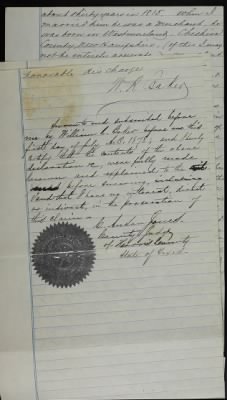 about thirty years in 1838. When I
married him he was a Merchant. He
was born in Westmoreland. Cheshire
County, New Hampshire. (of this I may
not be entirely accurate
honorable discharge
W. R. Baker
Sworn to and subscribed before
me by William R. Baker before me this
first day of July A.D. 1878, and I hereby
certify that the contents of the above
declaration &c were fully made
known and explained to the
before swearing, including
and that I have no interest, direct
or indirect, in the prosecution of
this claim
C. Anson Jones
County Judge
of Harris County
State of Texas